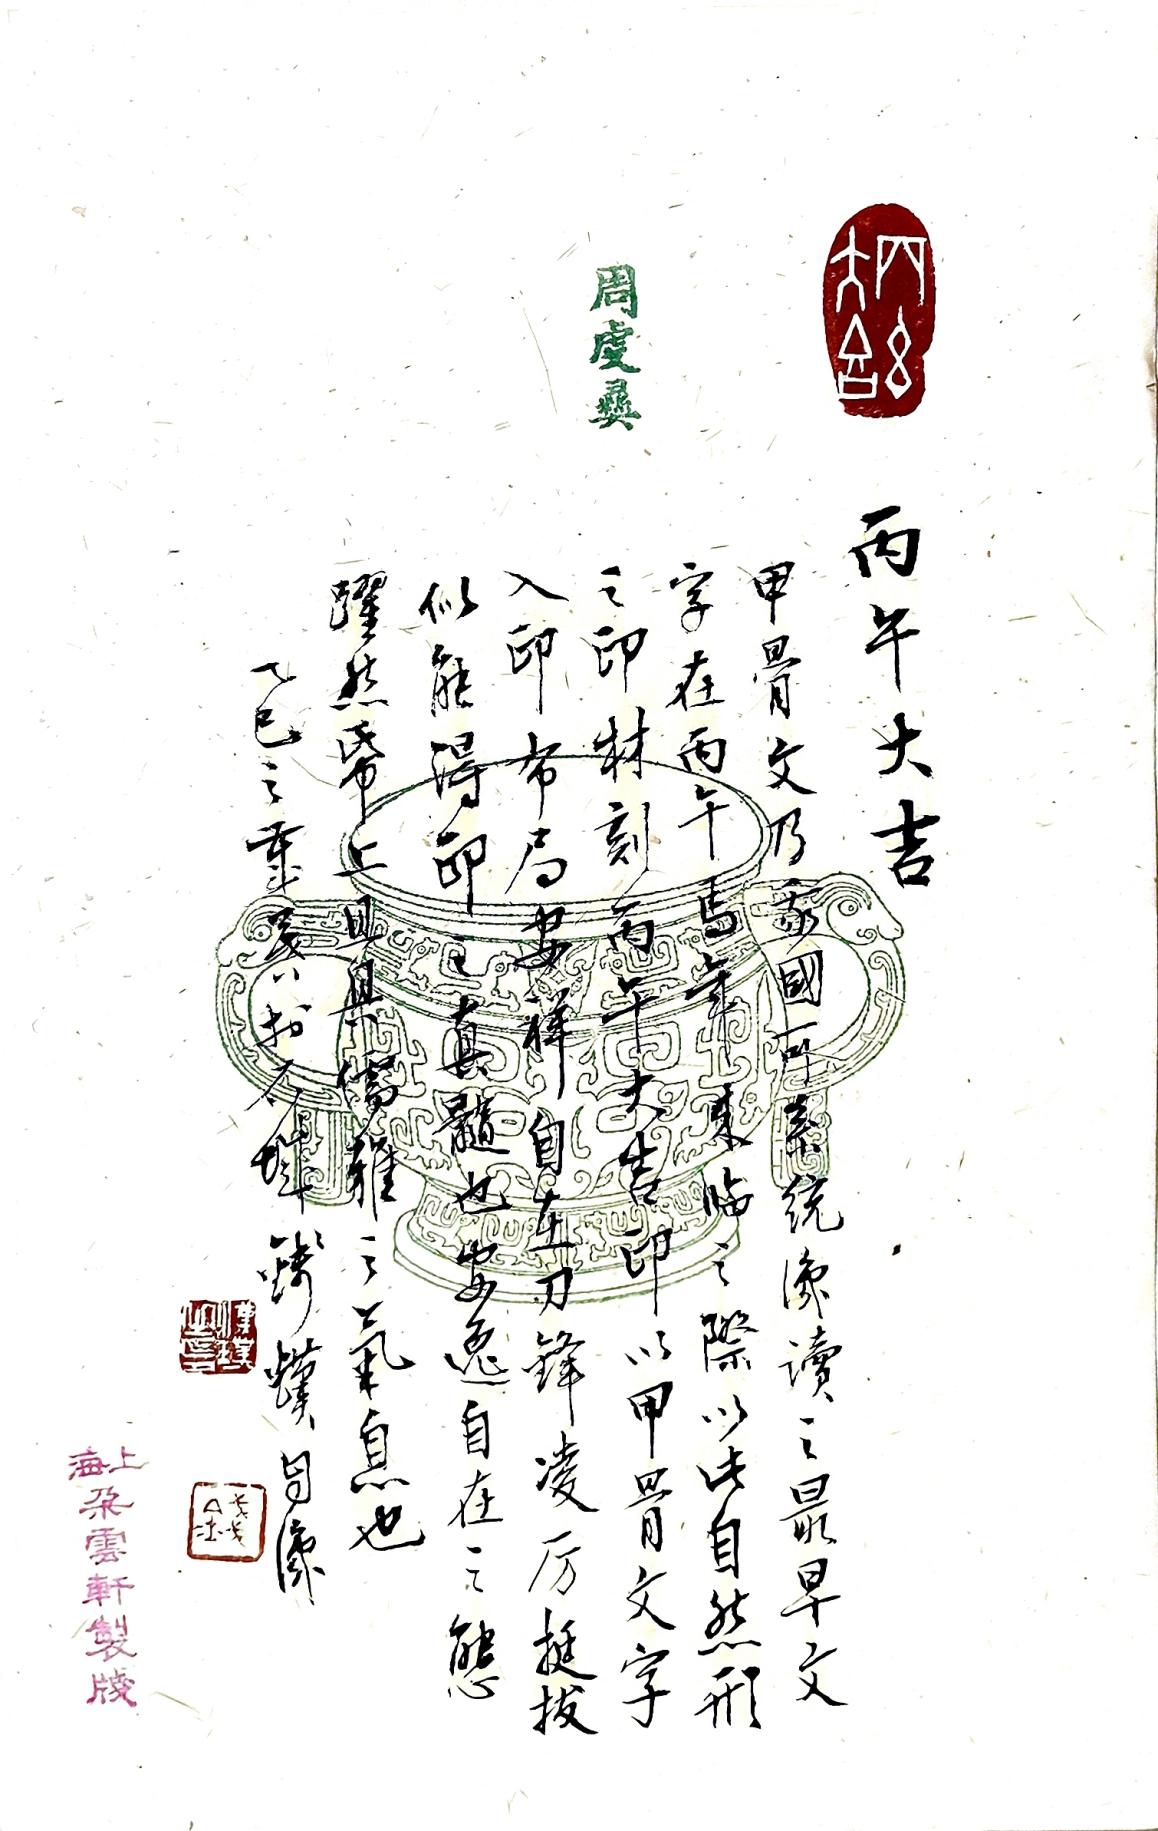 丙午大吉
周虔彝
丙午大吉
甲骨文乃我國可系統識讀之最早文
字在丙午馬年來臨之際以此自然形
之印材刻丙午大吉印以甲骨文字
入印布局安祥自在刀鋒凌厉挺拔
似能得印之真髓也安逸自在之態
躍然帋上具具儒雅之氣息也
乙巳之 於石 識
上海
朵雲軒製牋